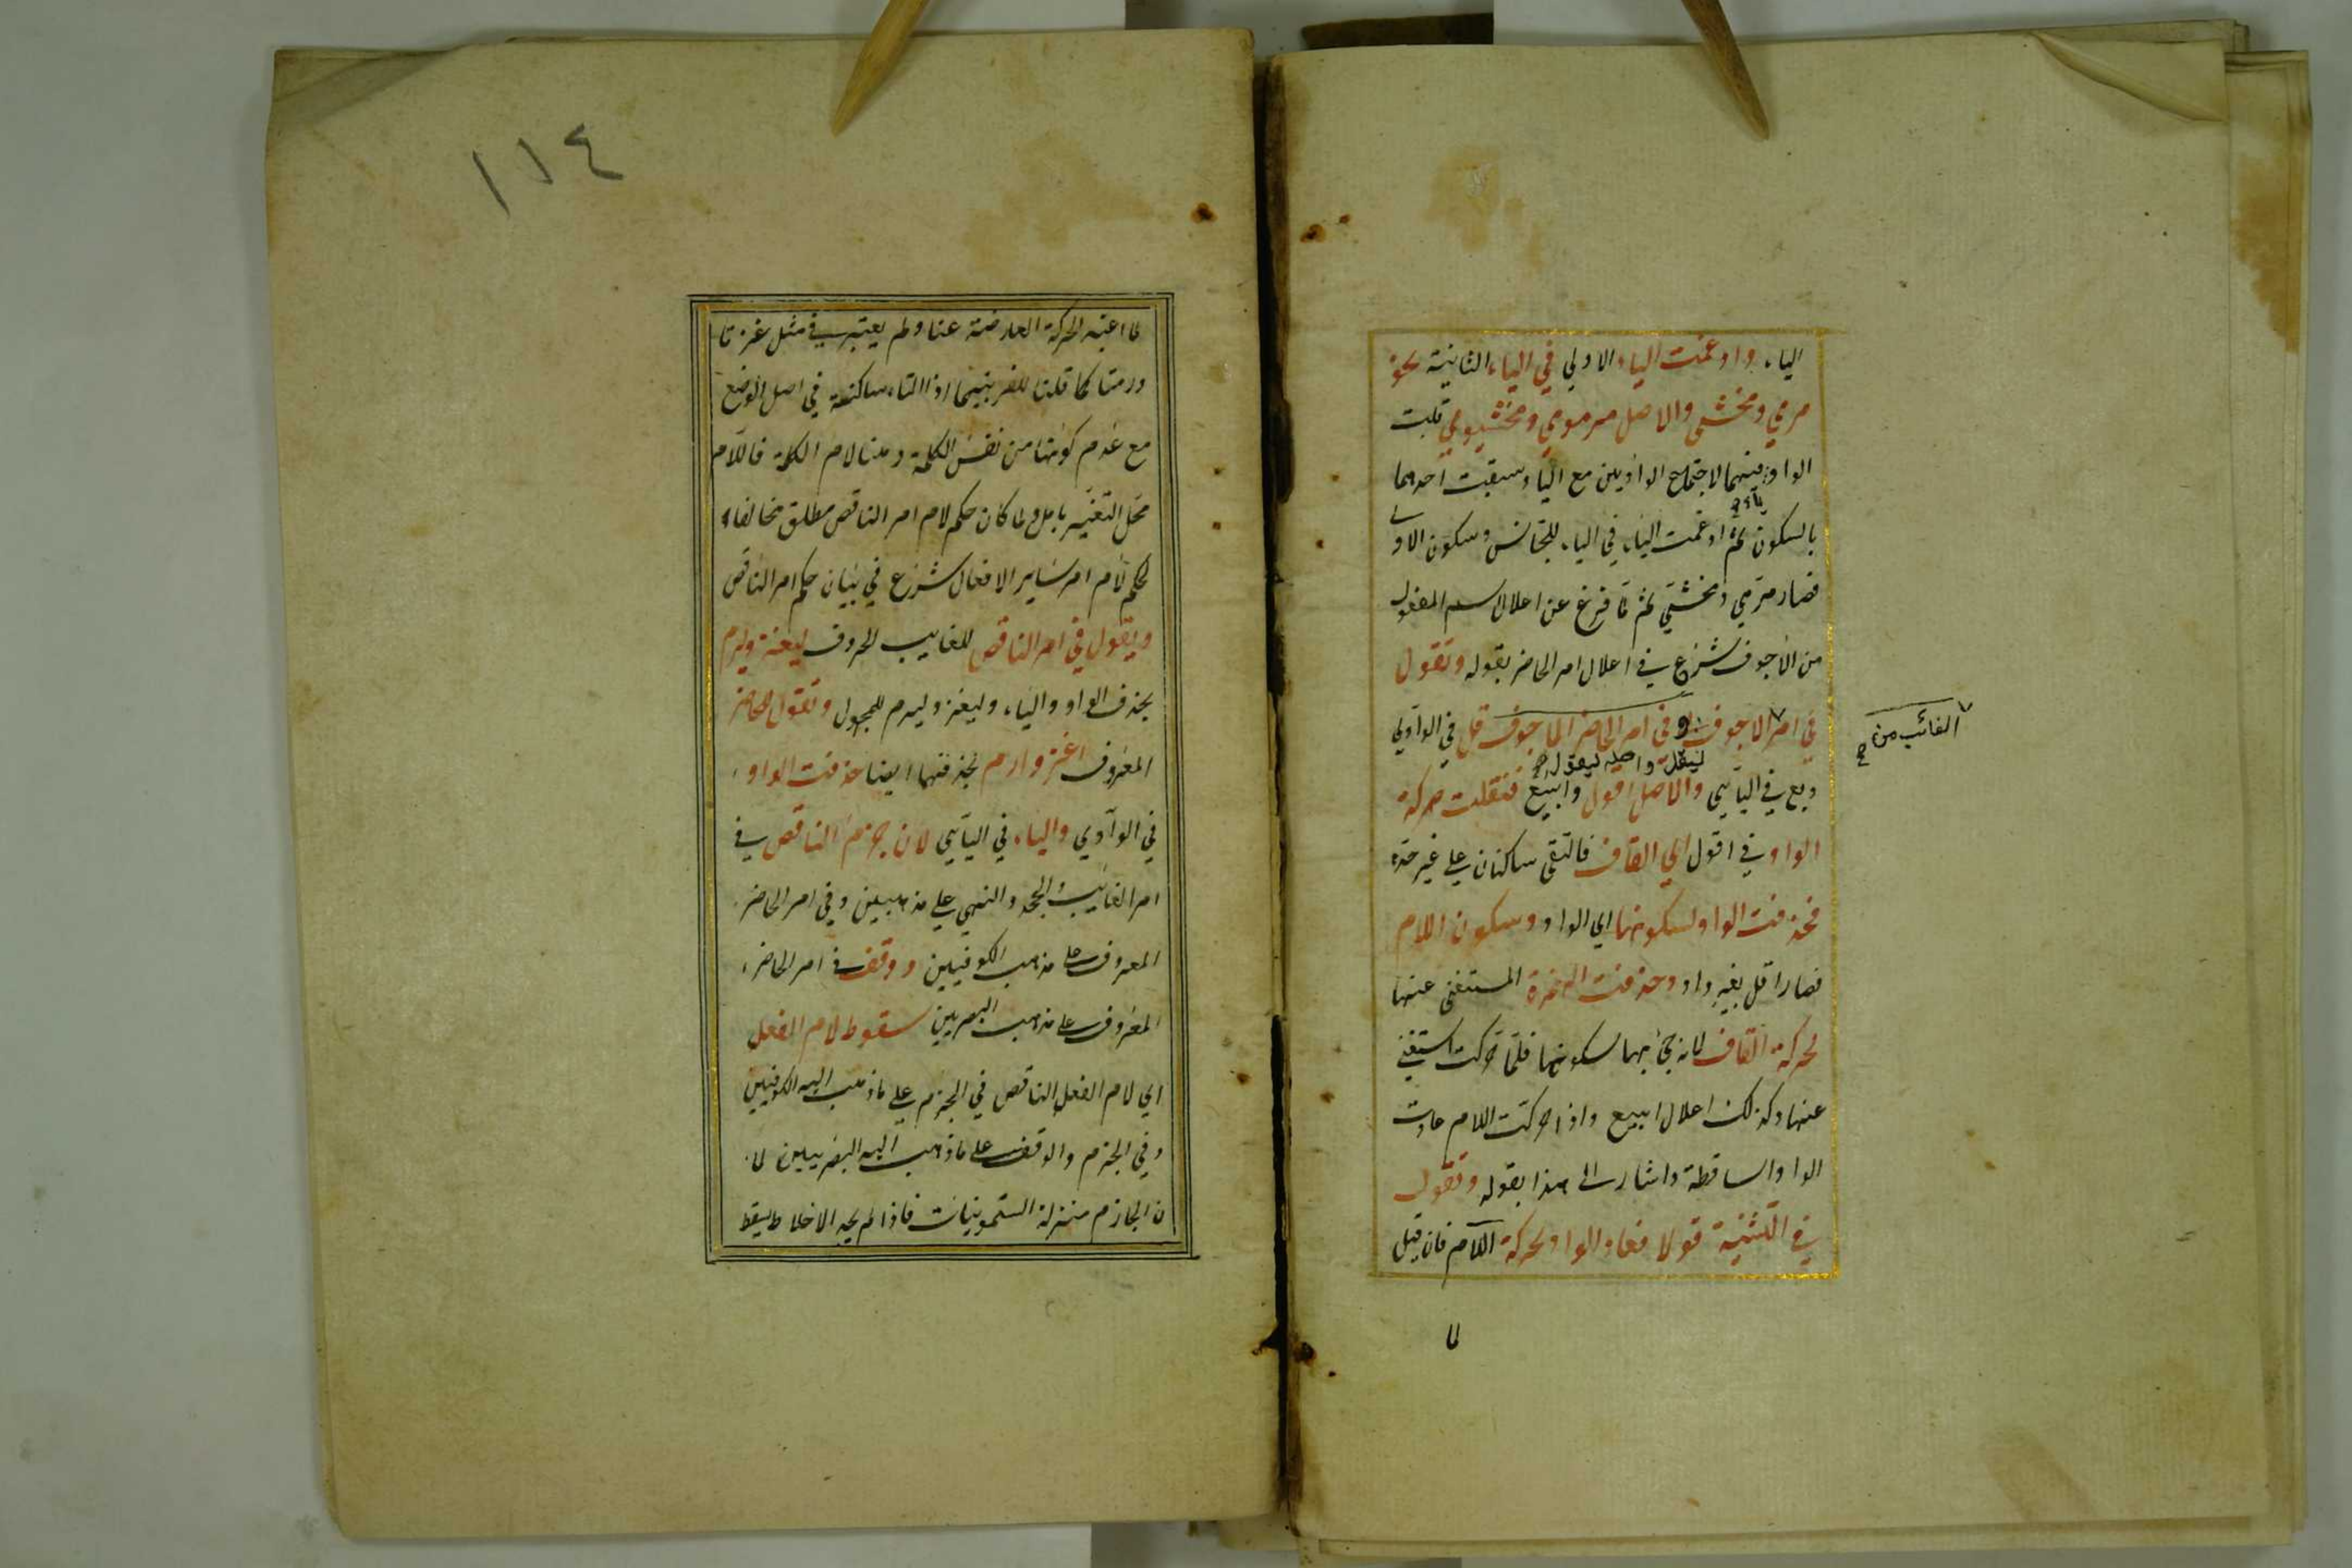 الياء وادغمت الياء الاولي في الياء الثانية نحو
مرمي ومخشي والاصل مرموي ومخشيوي قلبت
الواو منهما لاجتماع الواوين مع الياء وسبقت احدهما
ياء
بالسكون ثم ادغمت الياء في الياء للتجانس وسكون الاولى
فصار مرمي ومخشي ثم لما فرغ عن اعلال اسم المفعول
من الاجوف شرع في اعلال امر الحاضر بقوله وتقول
في امر الاجوف وفي امر الحاضر الاجوف قل في الواوي
الغائب من
ليقل واصله ليقول
وبع في اليايي والاصل اقول وابيع فنقلت حركة
الواو في اقول الي القاف فالتقى ساكنان علي غير حده
فحذفت الواو لسكونها اي الواو وسكون اللام
فصار اقل بغير واو وحذفت الهمزة المستغنى عنها
لحركة القاف لانه جئ بها لسكونها فلما حركت استغني
عنها وكذلك اعلال ابيع واذا حركت اللام عادت
الواو الساقطة واشار الى هذا بقوله وتقول
في التثنية قولا فعاد الواو لحركة اللام فان قيل
لما
١١٤
لما اعتبر الحركة العارضة عنا ولم يعتبر في مثل غزتا
ورمتا كما قلت للفر بينهما اذا التاء ساكنة في اصل الوضع
مع عدم كونها من نفس الكلمة وهنا لام الكلمة فاللام
محل التغير بامل ولما كان حكم لام امر الناقص مطلق مخالفا
لحكم لام امر ساير الافعال شرع في بيان حكم امر الناقص
ويقول في امر الناقص للغايب المعروف ليغز وليرم
بحذف الواو والياء وليغز وليرم للمجهول وتقول للحاضر
المعروف اغز وارم بحذفهما ايضا حذفت الواو
في الواوي والياء في اليايي لان جزم الناقص في
امر الغائب والجحد والنهي علي مذهبين وفي امر الحاضر
المعروف على مذهب الكوفيين ووقف في امر الحاضر
المعروف على مذهب البصريين سقوط لام الفعل
اي لام الفعل الناقص في الجزم علي ما ذهب اليه الكوفيين
وفي الجزم والوقف على ما ذهب اليه البصريين لا
ن الجازم منزلة السمونيات فاذا لم يجد الاخلاط يسقط